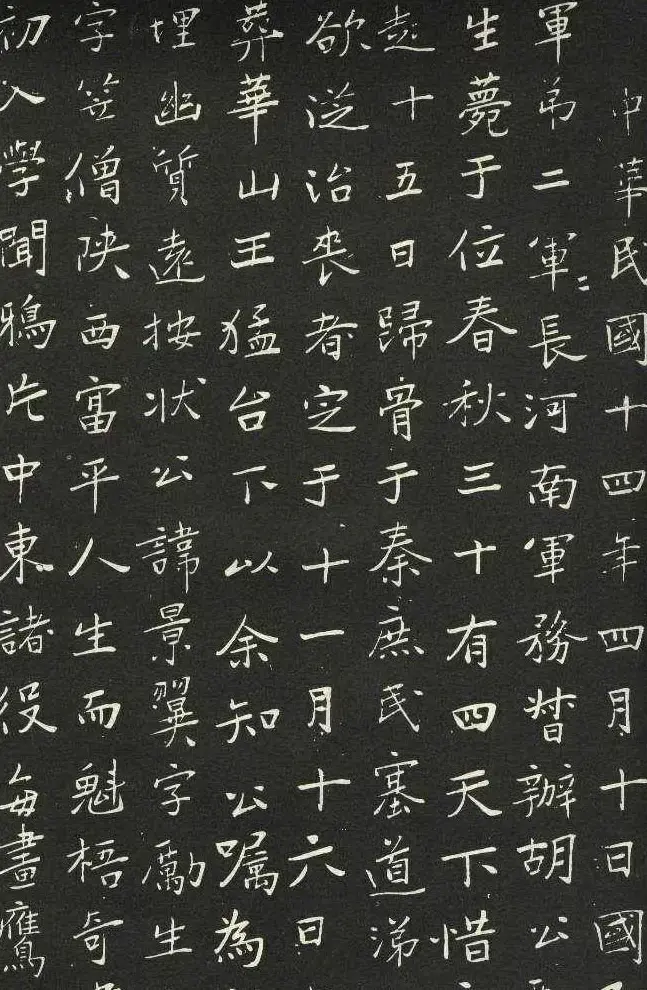 中華民國十四年四月十日國
軍弟二軍〻長河南軍務督辦胡公
生薨于位春秋三十有四天下惜
越十五日歸骨于秦庶民塞道涕
欲從治喪者定于十一月十六日
葬華山王猛台下以余知公嘱為
埋幽質遠按状公諱景翼字勵生
字笠僧陕西富平人生而魁梧奇
初入學聞鴉片中東諸役每畫鷹